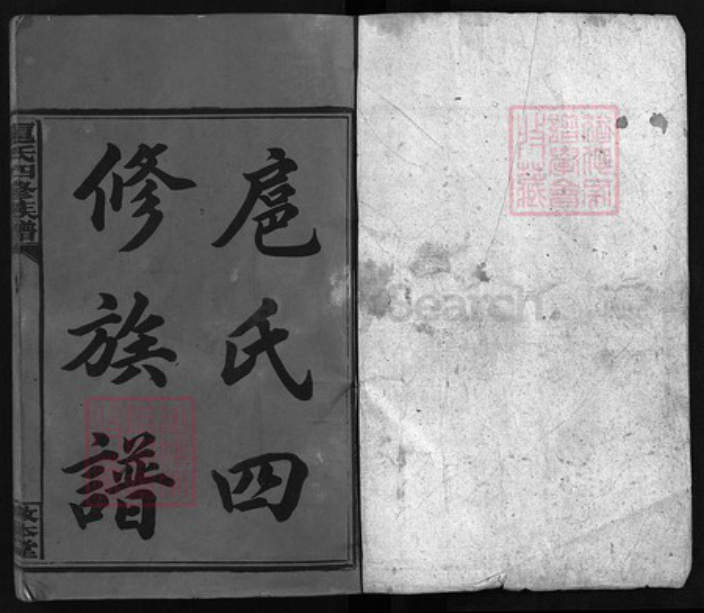 扈氏四
修族譜
扈氏四修族譜
Search